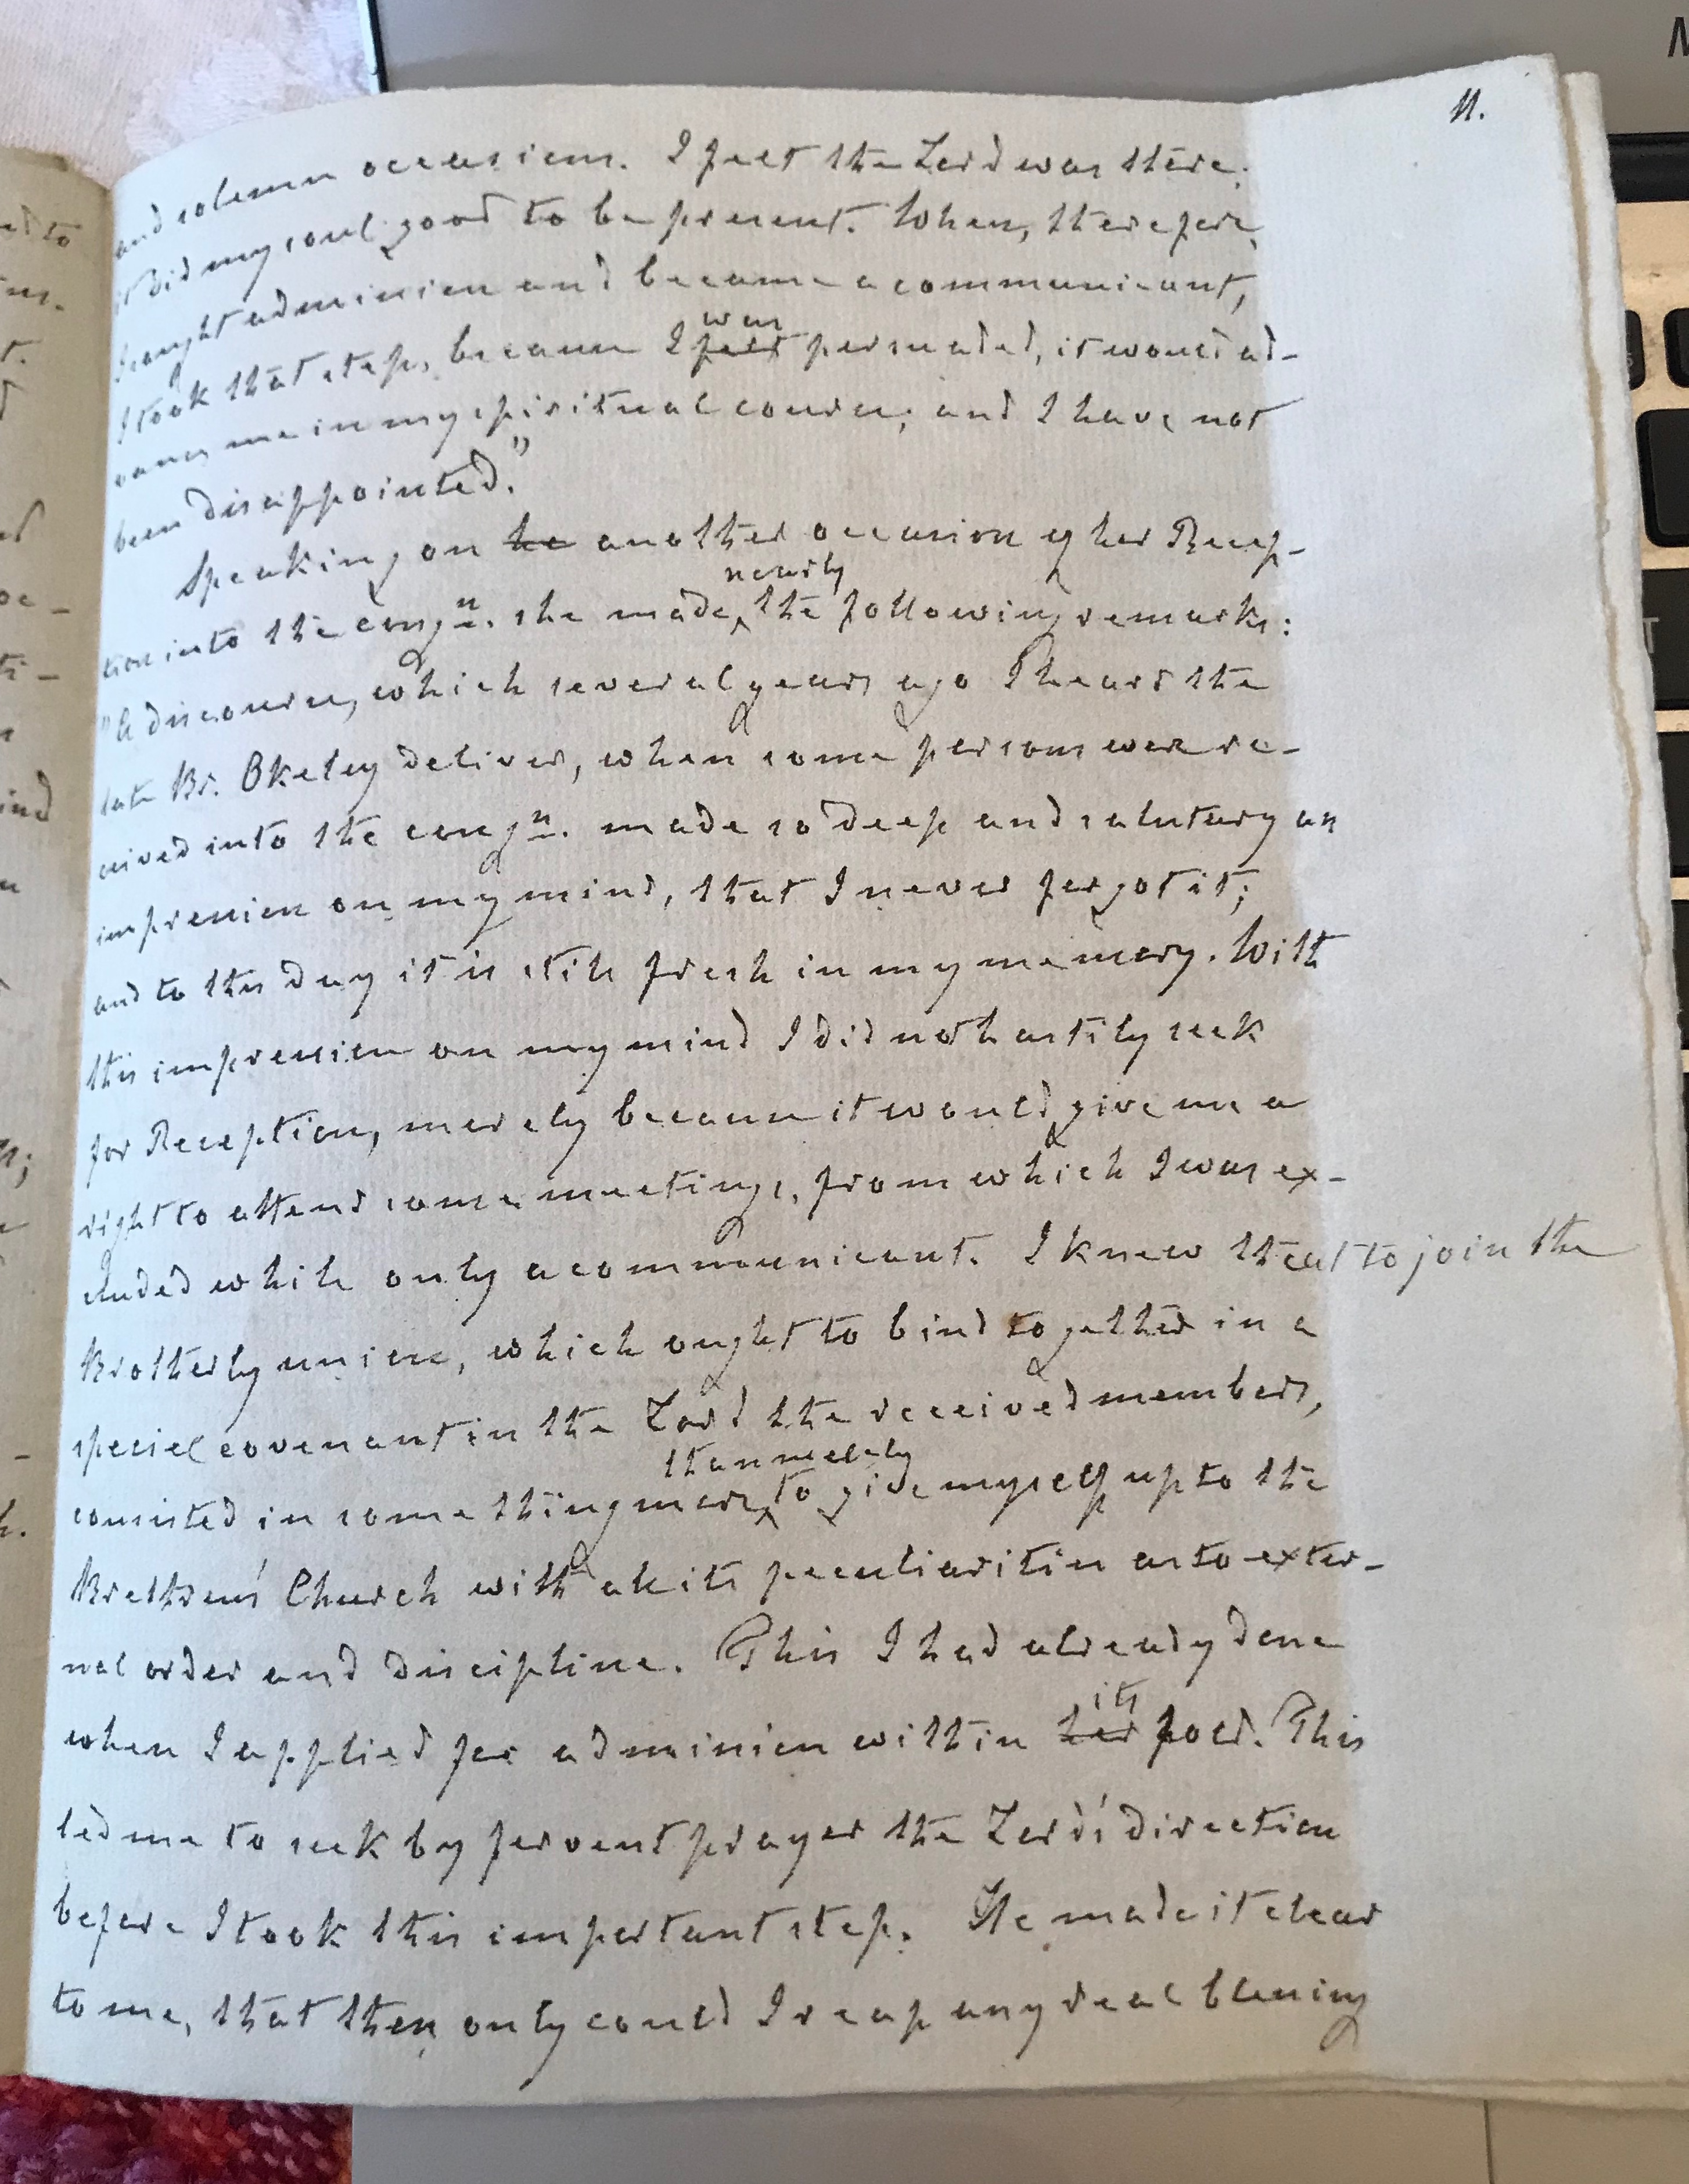 11.
and solemn occasions. I felt the Lord was there;
it did my soul good to be present. When, therefore,
I sought admission and became a communicant,
I took that step, because I felt was persuaded, it would ad-
vance me in my spiritual course; and I have not
been disappointed."
Speaking on he another occasion of her Recep-
tion into the congn. she made nearly the following remarks:
"A discourse, which several years ago I heard the
late Br. Okeley deliver, when some persons were re-
ceived into the congn. made so deep and salutary an
impression on my mind, that I never forgot it;
and to this day it is still fresh in my memory. With
this impression on my mind I did not hastily seek
for Reception, merely because it would give me a
right to attend some meetings, from which I was ex-
cluded while only a communicant. I knew that to join the
Brotherly union, which ought to bind together in a
special covenant in the Lord the received members,
consisted in something more than merely to give myself up to the
Brethren's Church with all its peculiarities as to exter-
nal order and discipline. This I had already done
when I applied for admission within her its fold. This
led me to seek by fervent prayer the Lord's direction
before I took this important step. He made it clear
to me, that then only could I reap any real blessing